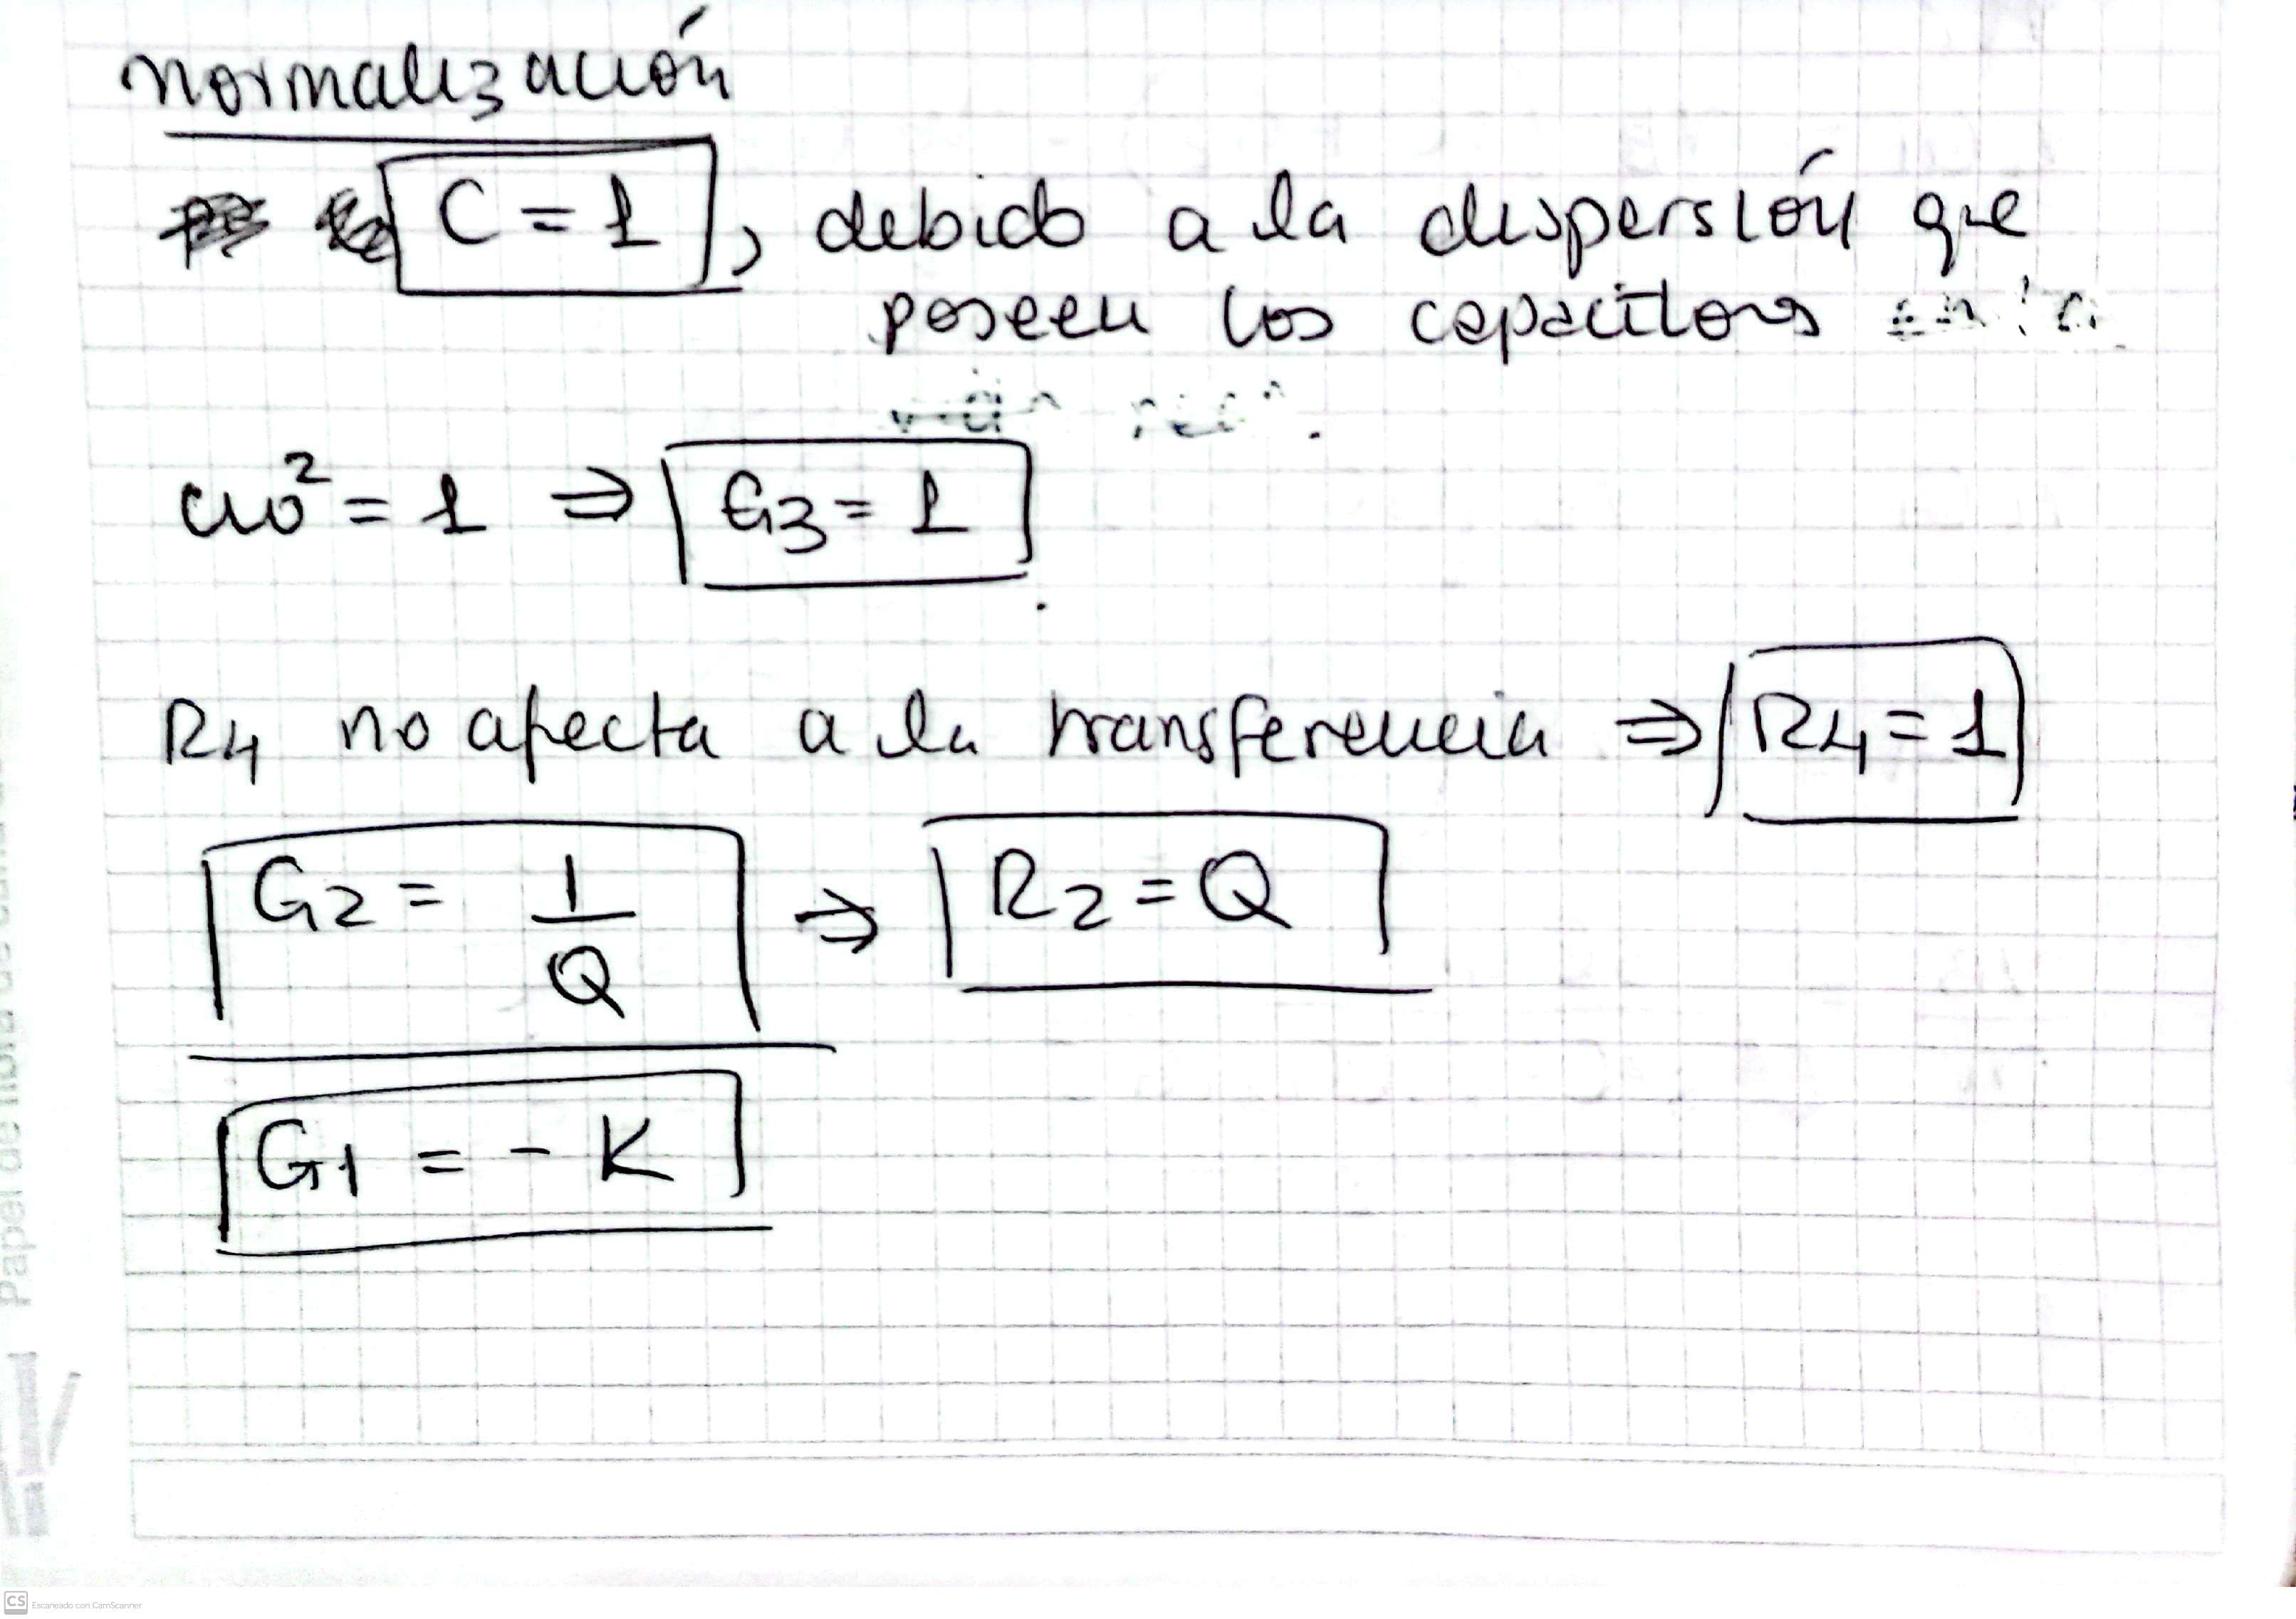 normalización
C = 1, debido a la dispersión que
poseen los capacitores
ωo² = 1 ⇒ G3 = 1.
R4 no afecta a la transferencia ⇒ R4 = 1
G2 = 1/Q ⇒ R2 = Q
G1 = - K
Papel de fibra de caña de
CS Escaneado con CamScanner